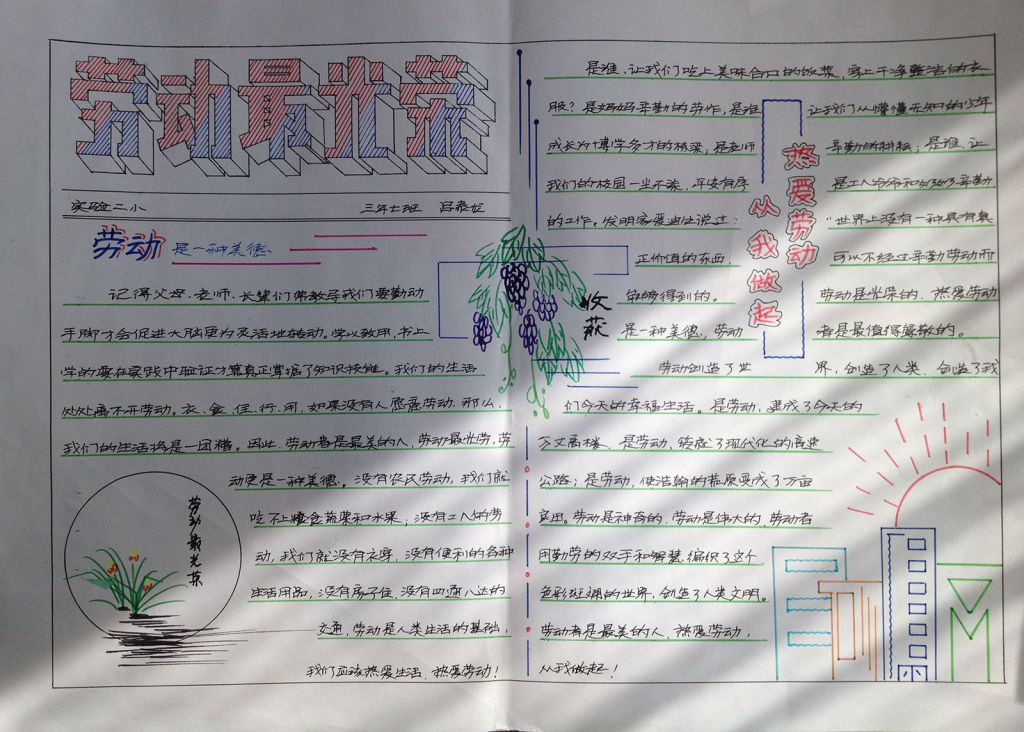 劳动最光荣
实验二小 三年七班
劳动 是一种美德
记得父母、老师、长辈们常教导我们要勤动
手脚才会促进大脑更为灵活地转动。学以致用,书上
学的要在实践中验证才算真正掌握了知识技能。我们的生活
处处离不开劳动。衣、食、住、行、用,如果没有人愿意劳动,那么,
我们的生活将是一团糟。因此,劳动者是最美的人,劳动最光荣,劳
动更是一种美德。没有农民劳动,我们就
吃不上粮食蔬菜和水果;没有工人的劳
动,我们就没有衣穿,没有便利的各种
生活用品,没有房子住,没有四通八达的
交通,劳动是人类生活的基础,
我们应该热爱生活、热爱劳动!
劳动最光荣
收获
热爱劳动
从我做起
是谁、让我们吃上美味合口的饭菜,穿上干净整洁的衣
服?是妈妈辛勤的劳作,是谁 让我们从懵懂无知的少年
成长为博学多才的栋梁,是老师 辛勤的耕耘;是谁,让
我们的校园一尘不染,平安有序 是工人爷爷和 辛勤
的工作。发明家爱迪生说过: “世界上没有一种具有真
正价值的东西, 可以不经过辛勤劳动而
能够得到的。 劳动是光荣的,热爱劳动
是一种美德,劳动 者是最值得尊敬的。
劳动创造了世 界,创造了人类、创造了我
们今天的幸福生活。是劳动,建成了今天的
万丈高楼、是劳动,铸就了现代化的高速
公路;是劳动,使浩翰的荒原变成了万亩
良田。劳动是神奇的,劳动是伟大的,劳动者
用勤劳的双手和智慧,编织了这个
色彩斑斓的世界,创造了人类文明。
劳动者是最美的人,热爱劳动,
从我做起!